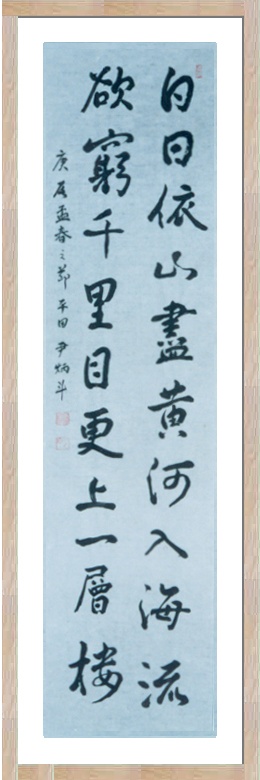 白日依山盡黄河入海流
欲窮千里目更上一層樓
庚辰孟春之節 平田 尹炳斗